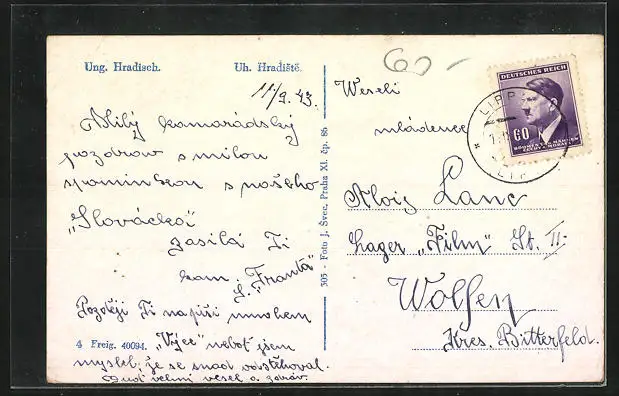 Ung. Hradisch. Uh. Hradiště.
11/9. 43.
Milý kamarádský
pozdrav s milou
vzpomínkou s našeho
"Slovácka"
zasílá Ti
kam. "Franta"
Později Ti napíši mnohem
"Více" neboť jsem
myslel, že se snad odstěhoval.
Buď velmi vesel a zdráv.
4 Freig. 40094.
305 - Foto J. Švec, Praha XI. čp. 86
60-
DEUTSCHES REICH
60
BÖHMEN UND MÄHREN
ČECHY A MORAVA
LIPP
Veselí
mládenec
Aloiz Lanc
Lager "Film" St. II-
Wolfen
Kres. Bitterfeld.